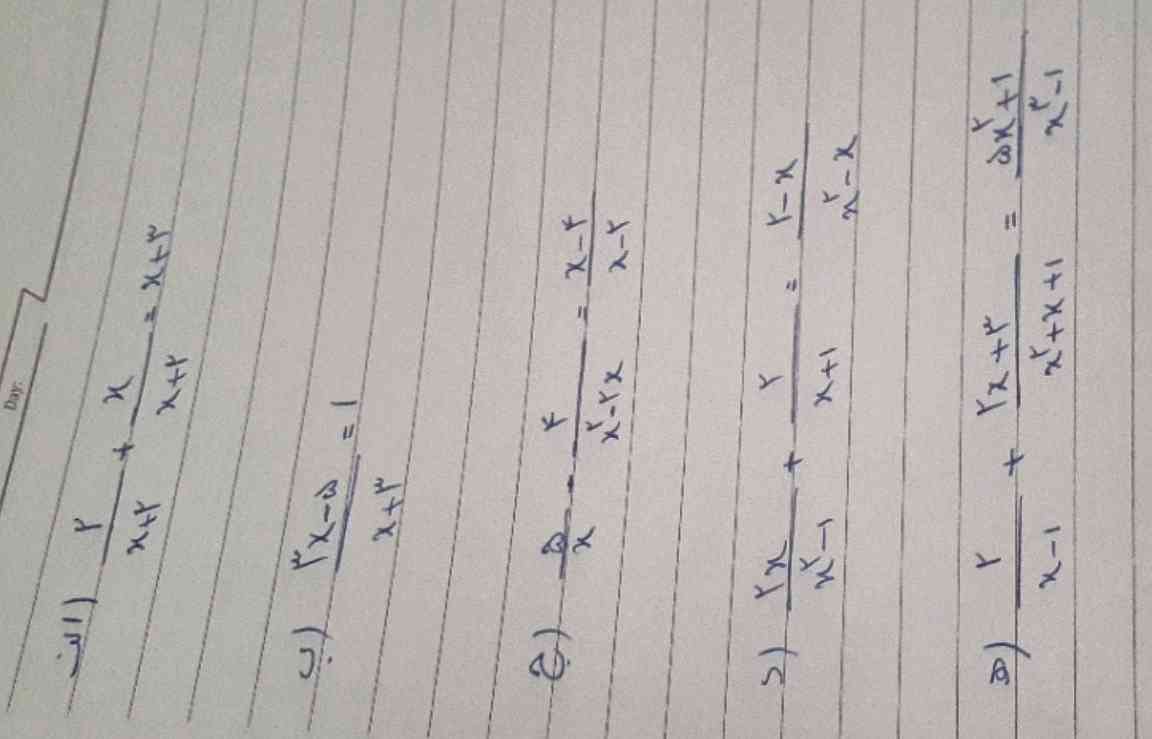 Day:
الف) ۲/(x+۲) + x/(x+۲) = x+۳
ب) (۳x-۵)/(x+۳) = 1
ج) ۵/x - ۴/(x^۲-۲x) = (x-۴)/(x-۲)
د) ۲x/(x^۲-1) + ۲/(x+1) = (۲-x)/(x^۲-x)
ه) ۲/(x-1) + (۲x+۳)/(x^۲+x+1) = (۵x^۲+1)/(x^۳-1)